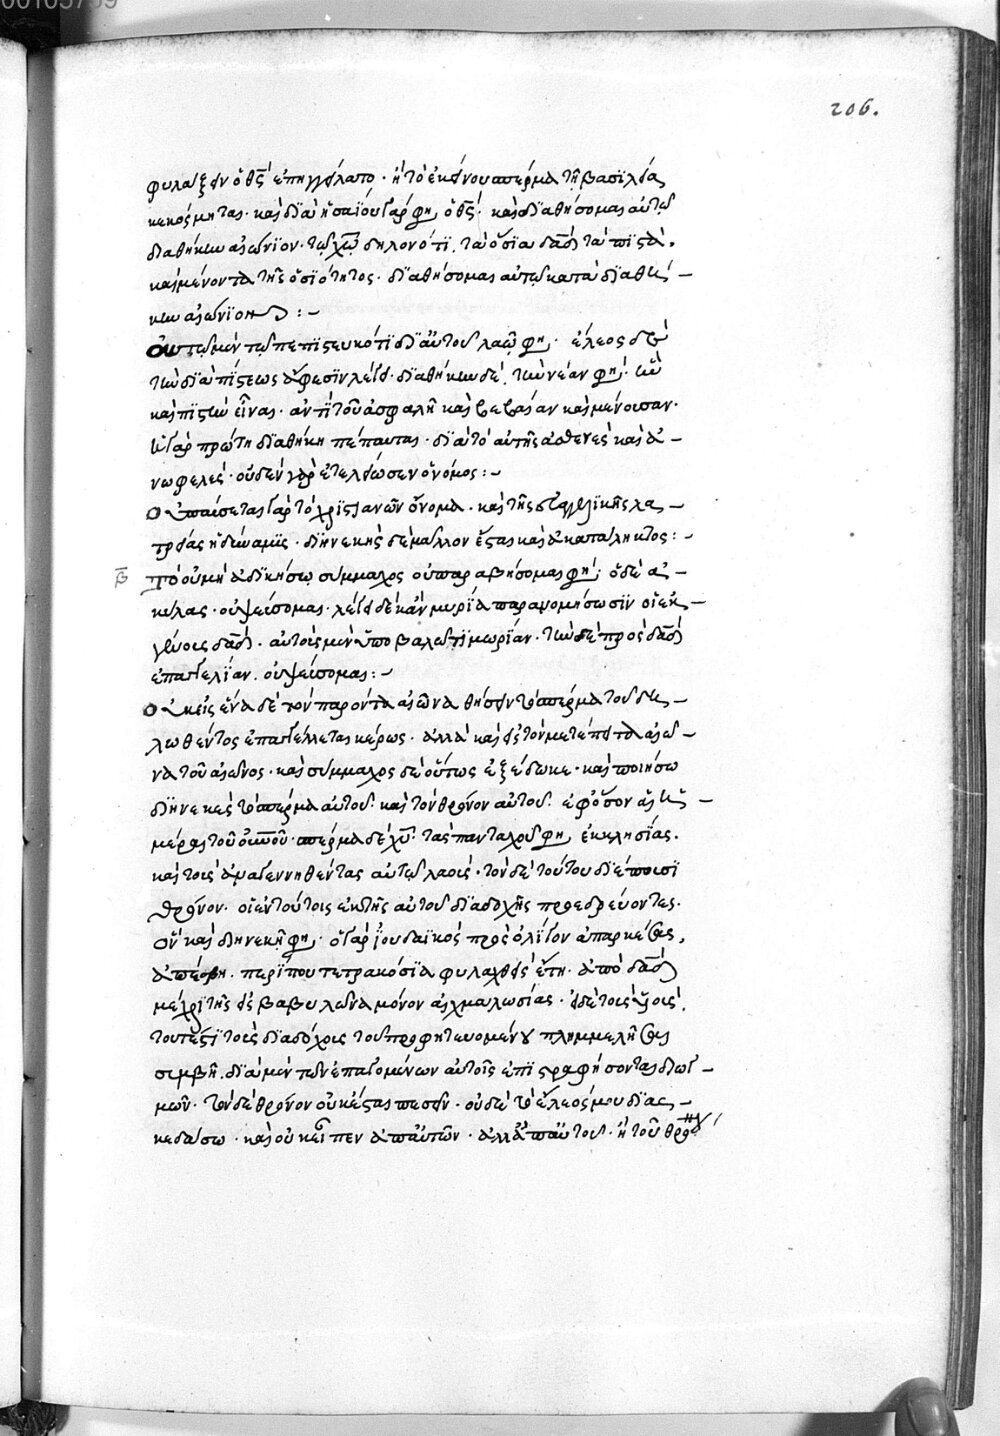 206.
φυλάξειν ὁ θς ἐπηγγείλατο · ἢ τὸ ἐκείνου σπέρμα τῇ βασιλεία
κεκόσμηται · καὶ διὰ ἡσαΐου γάρ φη, ὁ θς · καὶ διαθήσομαι αὐτῷ
διαθήκην αἰώνιον · τῷ χω δηλονότι, τὰ ὅσια δαδ τὰ πιστὰ ·
καὶ μένοντα τῆς ὁσιότητος · διαθήσομαι αὐτῷ κατὰ διαθή –
κην αἰώνιον :–
τῷ μὲν τῷ πεπιστευκότι δι' αὐτοῦ λαῷ φη · ἔλεος
τὴν διὰ πίστεως ἄφεσιν λέγει · διαθήκην δὲ, τὴν νέαν φη · ἣν
καὶ πιστὴν εἶναι · ἀντὶ τοῦ ἀσφαλῆ καὶ βεβαίαν καὶ μένουσαν ·
ἡ γὰρ πρώτη διαθήκη πέπαυται · διὰ τὸ αὐτῆς ἀσθενὲς καὶ ἀ –
νωφελές · οὐδὲν γὰρ ἐτελείωσεν ὁ νόμος :–
Οὐ παύσεται γὰρ τὸ χριστιανῶν ὄνομα · καὶ τῆς εὐαγγελικῆς λα –
τρείας ἡ δύναμις · διηνεκὴς δὲ μᾶλλον ἔσται καὶ ἀκατάληκτος :–
β Τὸ οὐ μὴ ἀδικήσω σύμμαχος οὐ παραβήσομαι φη · ὁ δὲ ἀ –
κύλας · οὐ ψεύσομαι · λέγει δὲ κἂν μυρία παρανομήσωσιν οἱ ἐκ –
γένους δαδ · αὐτοὺς μὲν ὑποβαλῶ τιμωρίαν · τὴν δὲ πρὸς δαδ
ἐπαγγελίαν · οὐ ψεύσομαι :–
Οὐκ εἰς ἕνα δὲ τὸν παρόντα αἰῶνα θήσειν τὸ σπέρμα τοῦ δη –
λωθέντος ἐπαγγέλλεται κύριος · ἀλλὰ καὶ εἰς τὸν μετέπειτα αἰῶ –
να τοῦ αἰῶνος · καὶ σύμμαχος δὲ οὕτως ἐξέδωκε · καὶ ποιήσω
διηνεκὲς τὸ σπέρμα αὐτοῦ · καὶ τὸν θρόνον αὐτοῦ · ἐφ' ὅσον αἱ ἡ –
μέραι τοῦ οὐνοῦ · σπέρμα δὲ χυ · τὰς πανταχοῦ φη, ἐκκλησίας ·
καὶ τοὺς ἀναγεννηθέντας αὐτῷ λαοὺς · τὸν δὲ τούτου διέπουσι
θρόνον · οἱ ἐν τούτοις ἐκ τῆς αὐτοῦ διαδοχῆς προεδρεύοντες ·
ὃν καὶ διηνεκῆ φη · ὁ γὰρ ἰουδαϊκὸς πρὸς ὀλίγον
ἀπέσβη · περί που τετρακόσια φυλαχθεὶς ἔτη · ἀπὸ δαδ
μέχρι τῆς εἰς βαβυλῶνα μόνον αἰχμαλωσίας · εἰ δὲ τοῖς υἱοῖς,
τουτέστι τοῖς διαδόχοις τοῦ προφητευομένου πλημμελῆσαι
συμβῆ · διὰ μὲν τῶν ἐπαγομένων αὐτοῖς ἐπιστραφήσονται
μῶν · τὸν δὲ θρόνον οὐκ ἐάσαι πεσεῖν · οὐδὲ τὸ ἔλεός μου διασ –
κεδάσω · καὶ οὐκ εἶπεν ἀπ' αὐτῶν · ἀλλ' ἀπ' αὐτοῦ · ἢ τοῦ θρόνου